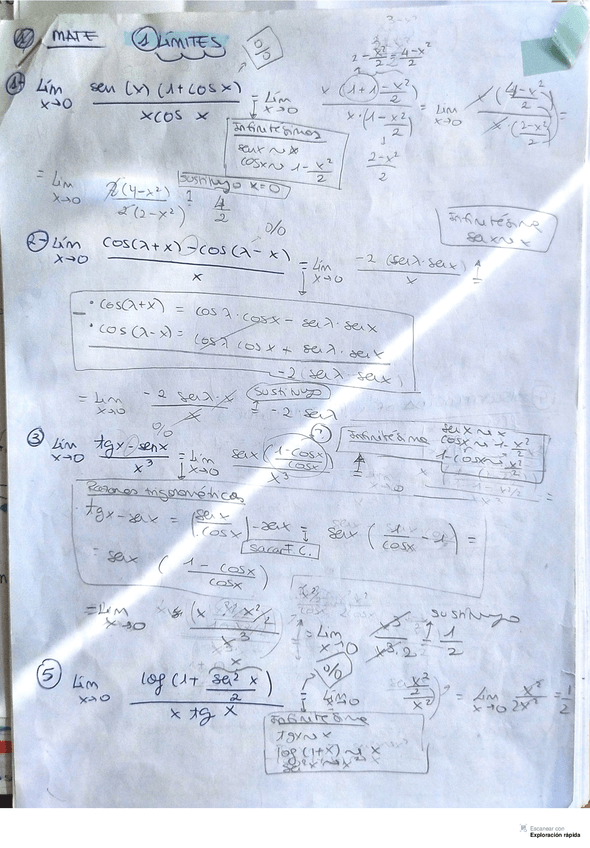 MATE ① LÍMITES 0/0
1- Lím x→0 sen (x) (1+cosx) / x cos x = Lím x→0 x (1+1-x²/2) / x·(1-x²/2) = Lím x→0 x (4-x²/2) / x·(2-x²/2) =
2-x²/2 = 4-x²/2
Infinitésimos
senx ~ x
cosx ~ 1-x²/2
2-x²/2
= Lím x→0 2(4-x²) / 2(2-x²) sustituyo x=0 = 4/2
Infinitésimo
senx ~ x
2- Lím x→0 cos(λ+x) - cos(λ-x) / x 0/0 = Lím x→0 -2 (senλ·senx) / x =
• cos(λ+x) = cosλ·cosx - senλ·senx
• cos(λ-x) = cosλ cosx + senλ·senx
-2(senλ·senx)
= Lím x→0 -2 senλ·x / x sustituyo = -2·senλ
③ Lím x→0 tgx-senx / x³ 0/0 = Lím x→0 senx (1-cosx / cosx) / x³ =
Infinitésimo
senx ~ x
cosx ~ 1-x²/2
1-cosx ~ x²/2
Razones trigonométricas
tgx-senx = (senx/cosx) - senx = senx (1/cosx - 1) =
sacar F.C.
= senx (1-cosx / cosx)
= Lím x→0 (x x²/2) / x³ = Lím x→0 x³ / x³·2 = 1/2 sustituyo
⑤ Lím x→0 log (1+ sen²x/2) / x tg x 0/0 = Lím x→0 x²/2 / x² = Lím x→0 x²/2x² = 1/2
Infinitésimo
tgx ~ x
log (1+x) ~ x
sen²x ~ x²
Escanear con
Exploración rápida